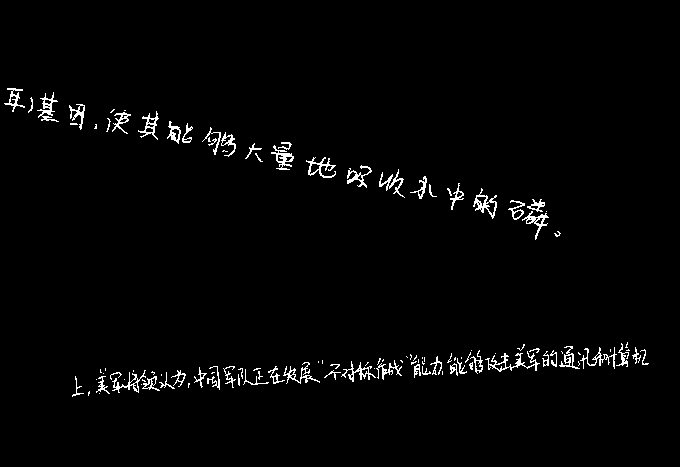 耳)基因,使其能够大量地吸收水中的磷。
上,美军将领认为,中国军队正在发展“不对称作战”能力,能够攻击美军的通讯和计算机